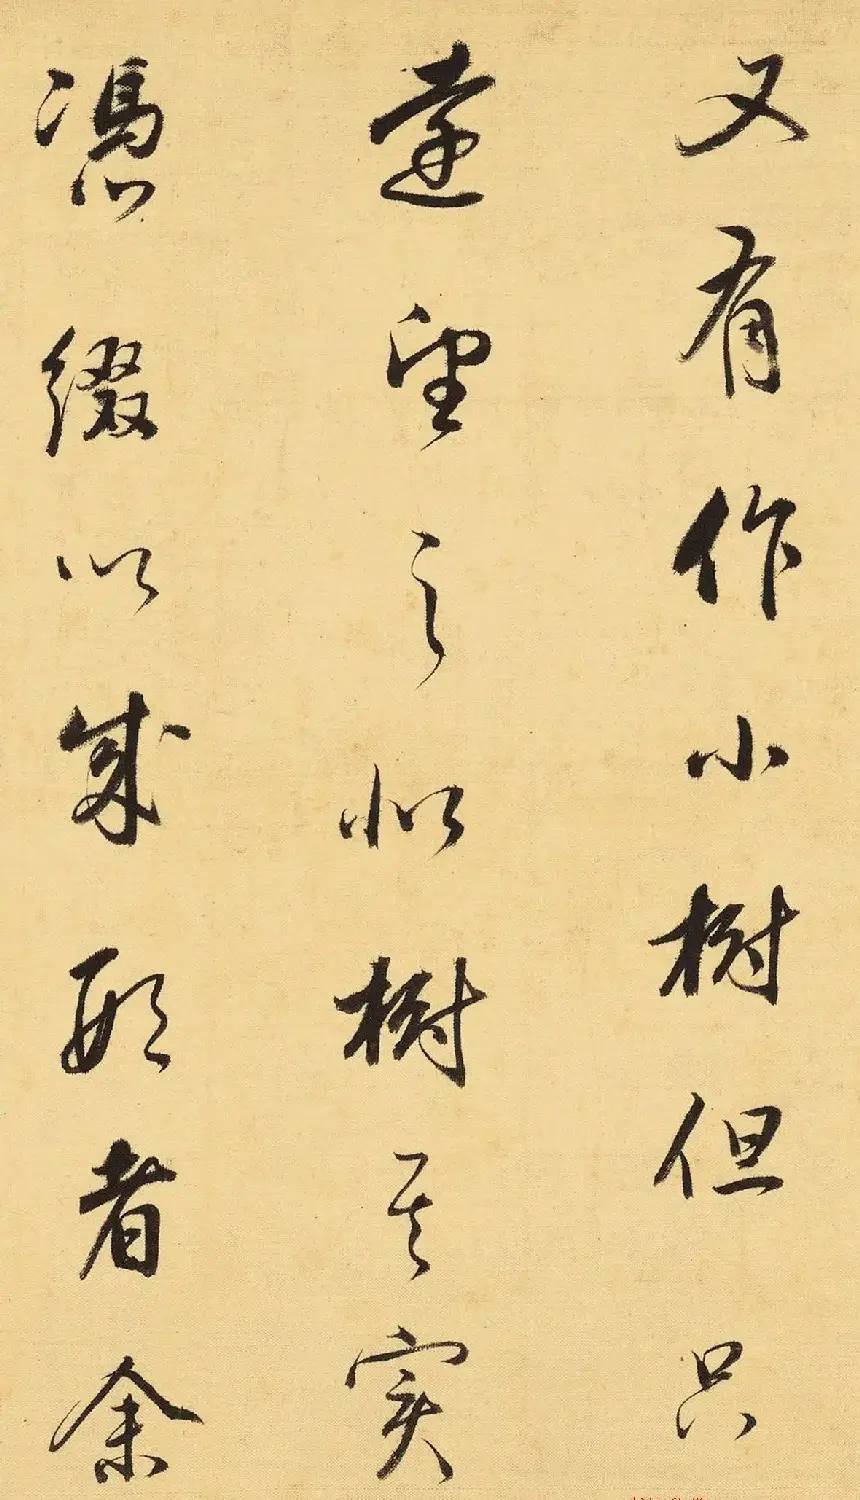 又有作小樹但只
遠望之似樹其實
憑綴以成形者余